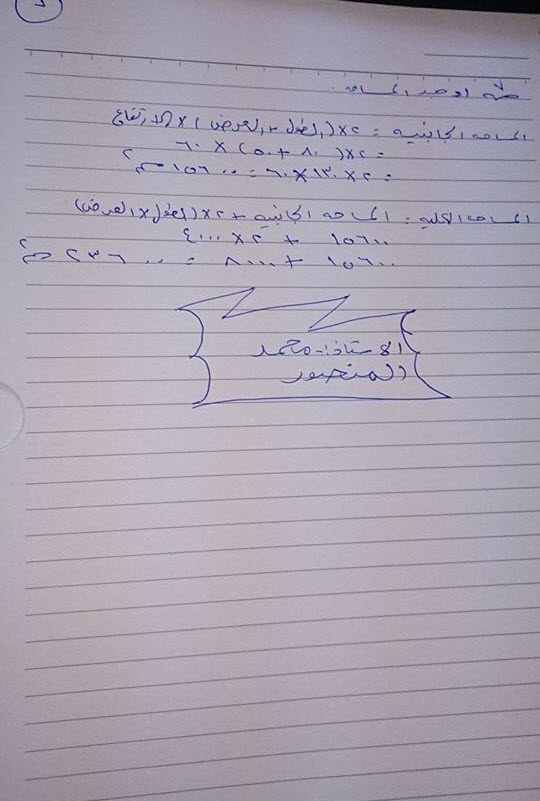 ٤
ثم اوجد المساحة.
المساحه الجانبيه = ٢×(الطول + العرض)×الارتفاع
= ٢×(٨٠ + ٥٠) × ٦٠
= ٢×١٣٠×٦٠ = ١٥٦٠٠ سم٢
المساحه الكليه = المساحه الجانبيه + ٢×(الطول×العرض)
١٥٦٠٠ + ٢× ٤٠٠٠
١٥٦٠٠ + ٨٠٠٠ = ٢٣٦٠٠ سم٢
الاستاذ:- محمد
المنصور